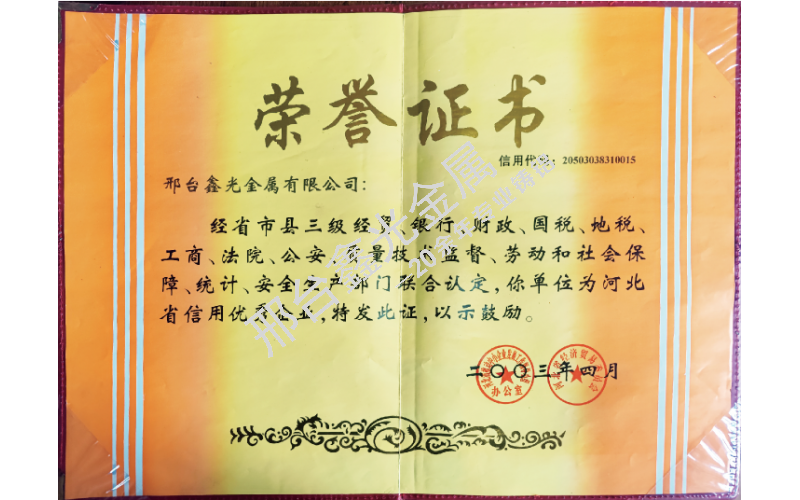 荣誉证书
信用代码：20503038310015
邢台鑫光金属有限公司：
经省市县三级经贸、银行、财政、国税、地税、
工商、法院、公安、质量技术监督、劳动和社会保
障、统计、安全生产部门联合认定，你单位为河北
省信用优秀企业，特发此证，以示鼓励。
二〇〇三年四月
邢台鑫光金属